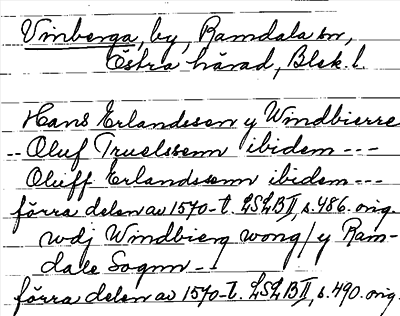 Vinberga, by, Ramdala sn,
Östra härad, Blek. l.
Hans Erlandsson y Windbierre
-- Oluf Truelssenn ibidem ---
Oluff Erlandssenn ibidem ---
förra delen av 1570-t. LSLB II, s. 486. orig.
wdj Windbierg wong / y Ram-
dale Sognn --
förra delen av 1570-t. LSLB II, s. 490. orig.